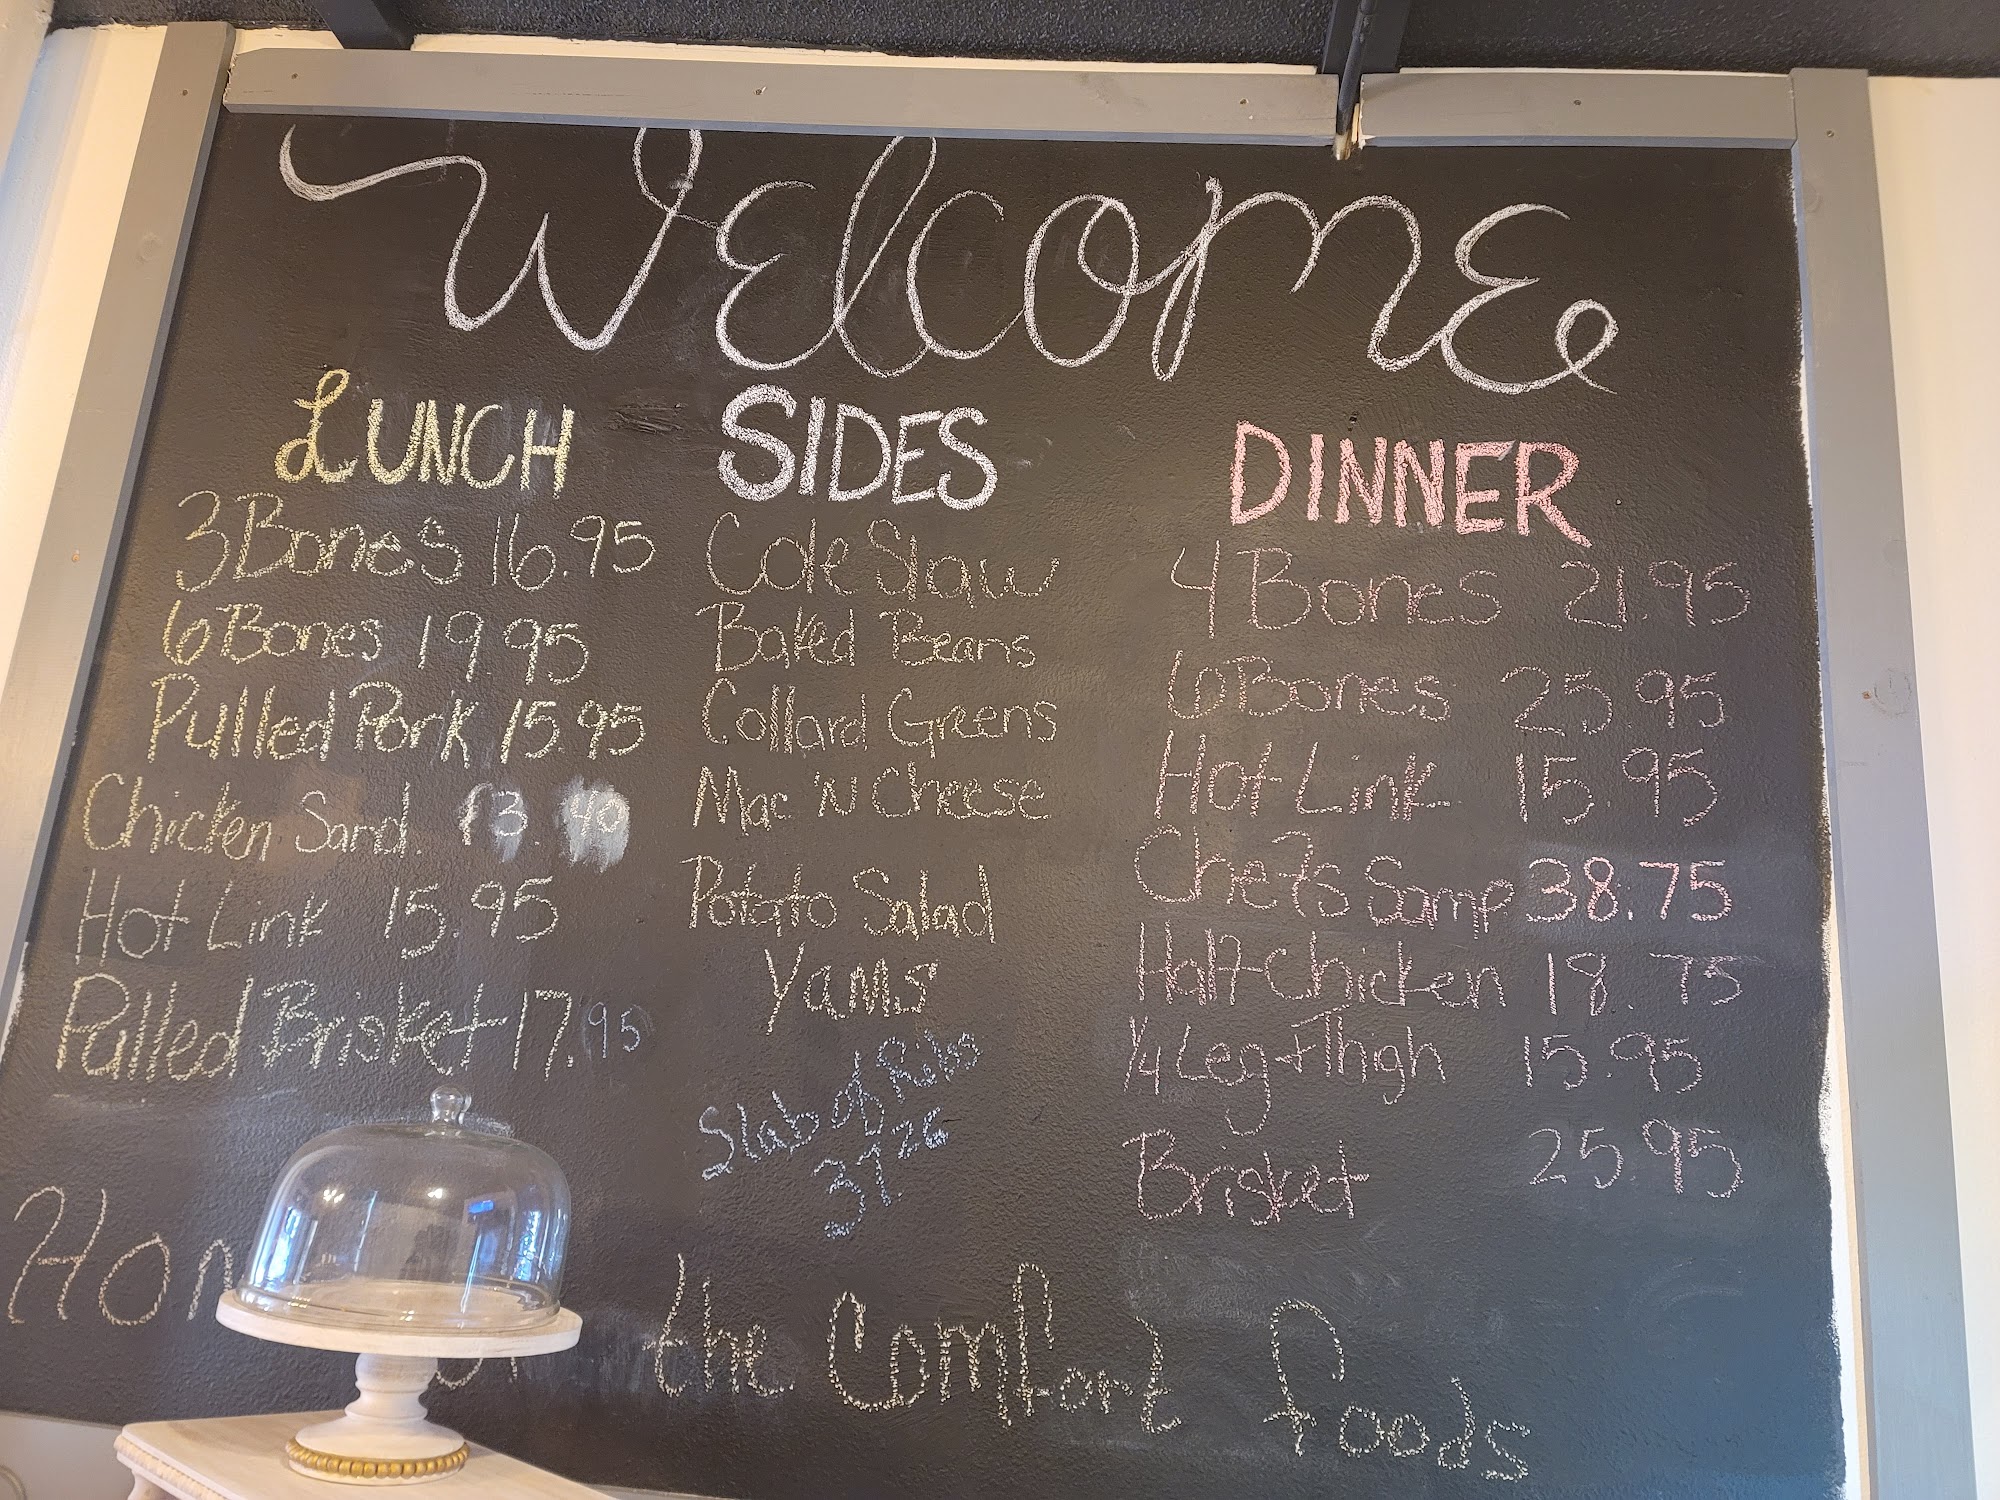 Welcome
LUNCH
3 Bones 16.95
6 Bones 19.95
Pulled Pork 15.95
Chicken Sand. 13.40
Hot Link 15.95
Pulled Brisket 17.95
SIDES
Cole Slaw
Baked Beans
Collard Greens
Mac 'N Cheese
Potato Salad
Yams
Slab of Ribs
37.26
DINNER
4 Bones 21.95
6 Bones 25.95
Hot Link 15.95
Chefs Samp 38.75
Half Chicken 18.75
1/4 Leg + Thigh 15.95
Brisket 25.95
the Comfort foods